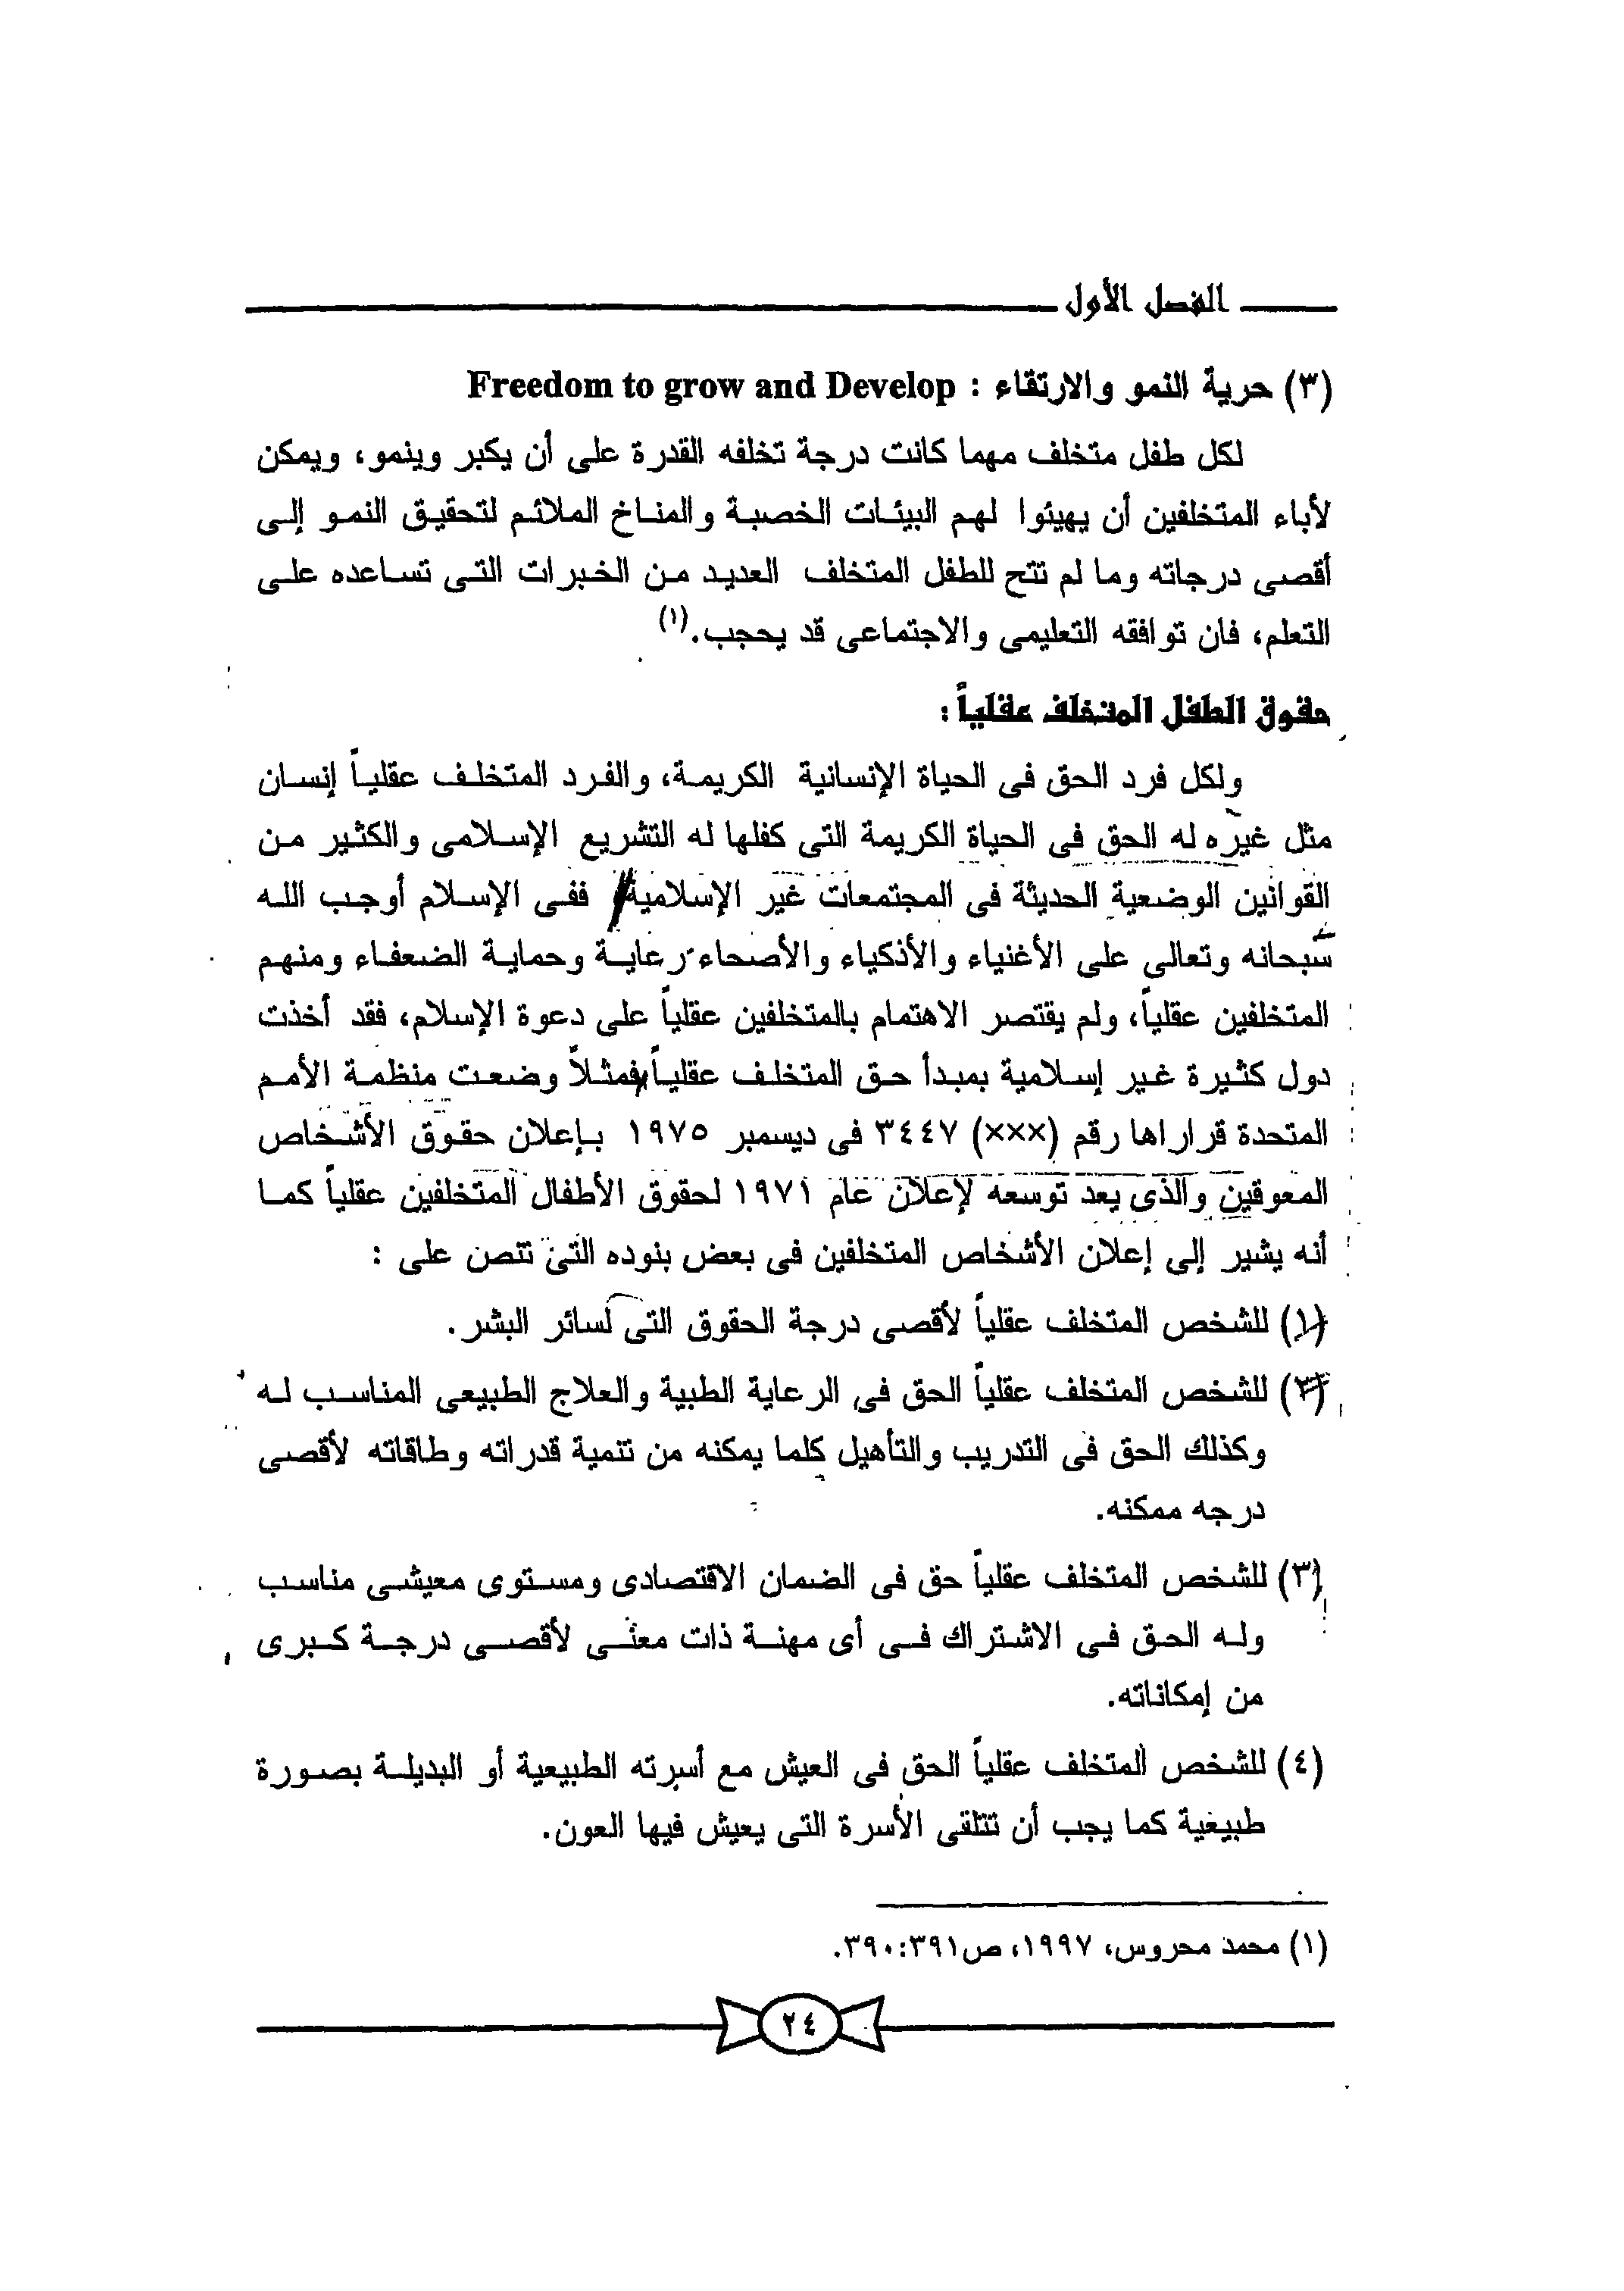 الفصل الأول
(٣) حرية النمو والارتقاء : Freedom to grow and Develop
لكل طفل متخلف مهما كانت درجة تخلفه القدرة على أن يكبر وينمو، ويمكن
لأباء المتخلفين أن يهيئوا لهم البيئات الخصبة والمناخ الملائم لتحقيق النمو إلى
أقصى درجاته وما لم تتح للطفل المتخلف العديد من الخبرات التى تساعده على
التعلم، فان توافقه التعليمى والاجتماعى قد يحجب.(١)
حقوق الطفل المتخلف عقلياً :
ولكل فرد الحق فى الحياة الإنسانية الكريمة، والفرد المتخلف عقلياً إنسان
مثل غيره له الحق فى الحياة الكريمة التى كفلها له التشريع الإسلامى والكثير من
القوانين الوضعية الحديثة فى المجتمعات غير الإسلامية، ففى الإسلام أوجب الله
سبحانه وتعالى على الأغنياء والأذكياء والأصحاء رعاية وحماية الضعفاء ومنهم
المتخلفين عقلياً، ولم يقتصر الاهتمام بالمتخلفين عقلياً على دعوة الإسلام، فقد أخذت
دول كثيرة غير إسلامية بمبدأ حق المتخلف عقلياً، فمثلاً وضعت منظمة الأمم
المتحدة قراراها رقم (×××) ٣٤٤٧ فى ديسمبر ١٩٧٥ بإعلان حقوق الأشخاص
المعوقين والذى يعد توسعه لإعلان عام ١٩٧١ لحقوق الأطفال المتخلفين عقلياً كما
أنه يشير إلى إعلان الأشخاص المتخلفين فى بعض بنوده التى تنص على :
(١) للشخص المتخلف عقلياً لأقصى درجة الحقوق التى لسائر البشر.
(٢) للشخص المتخلف عقلياً الحق فى الرعاية الطبية والعلاج الطبيعى المناسب له
وكذلك الحق فى التدريب والتأهيل كلما يمكنه من تنمية قدراته وطاقاته لأقصى
درجه ممكنه.
(٣) للشخص المتخلف عقلياً حق فى الضمان الاقتصادى ومستوى معيشى مناسب
وله الحق فى الاشتراك فى أى مهنة ذات معنى لأقصى درجة كبرى
من إمكاناته.
(٤) للشخص المتخلف عقلياً الحق فى العيش مع أسرته الطبيعية أو البديلة بصورة
طبيعية كما يجب أن تتلقى الأسرة التى يعيش فيها العون.
(١) محمد محروس، ١٩٩٧، ص٣٩٠:٣٩١.
٢٤